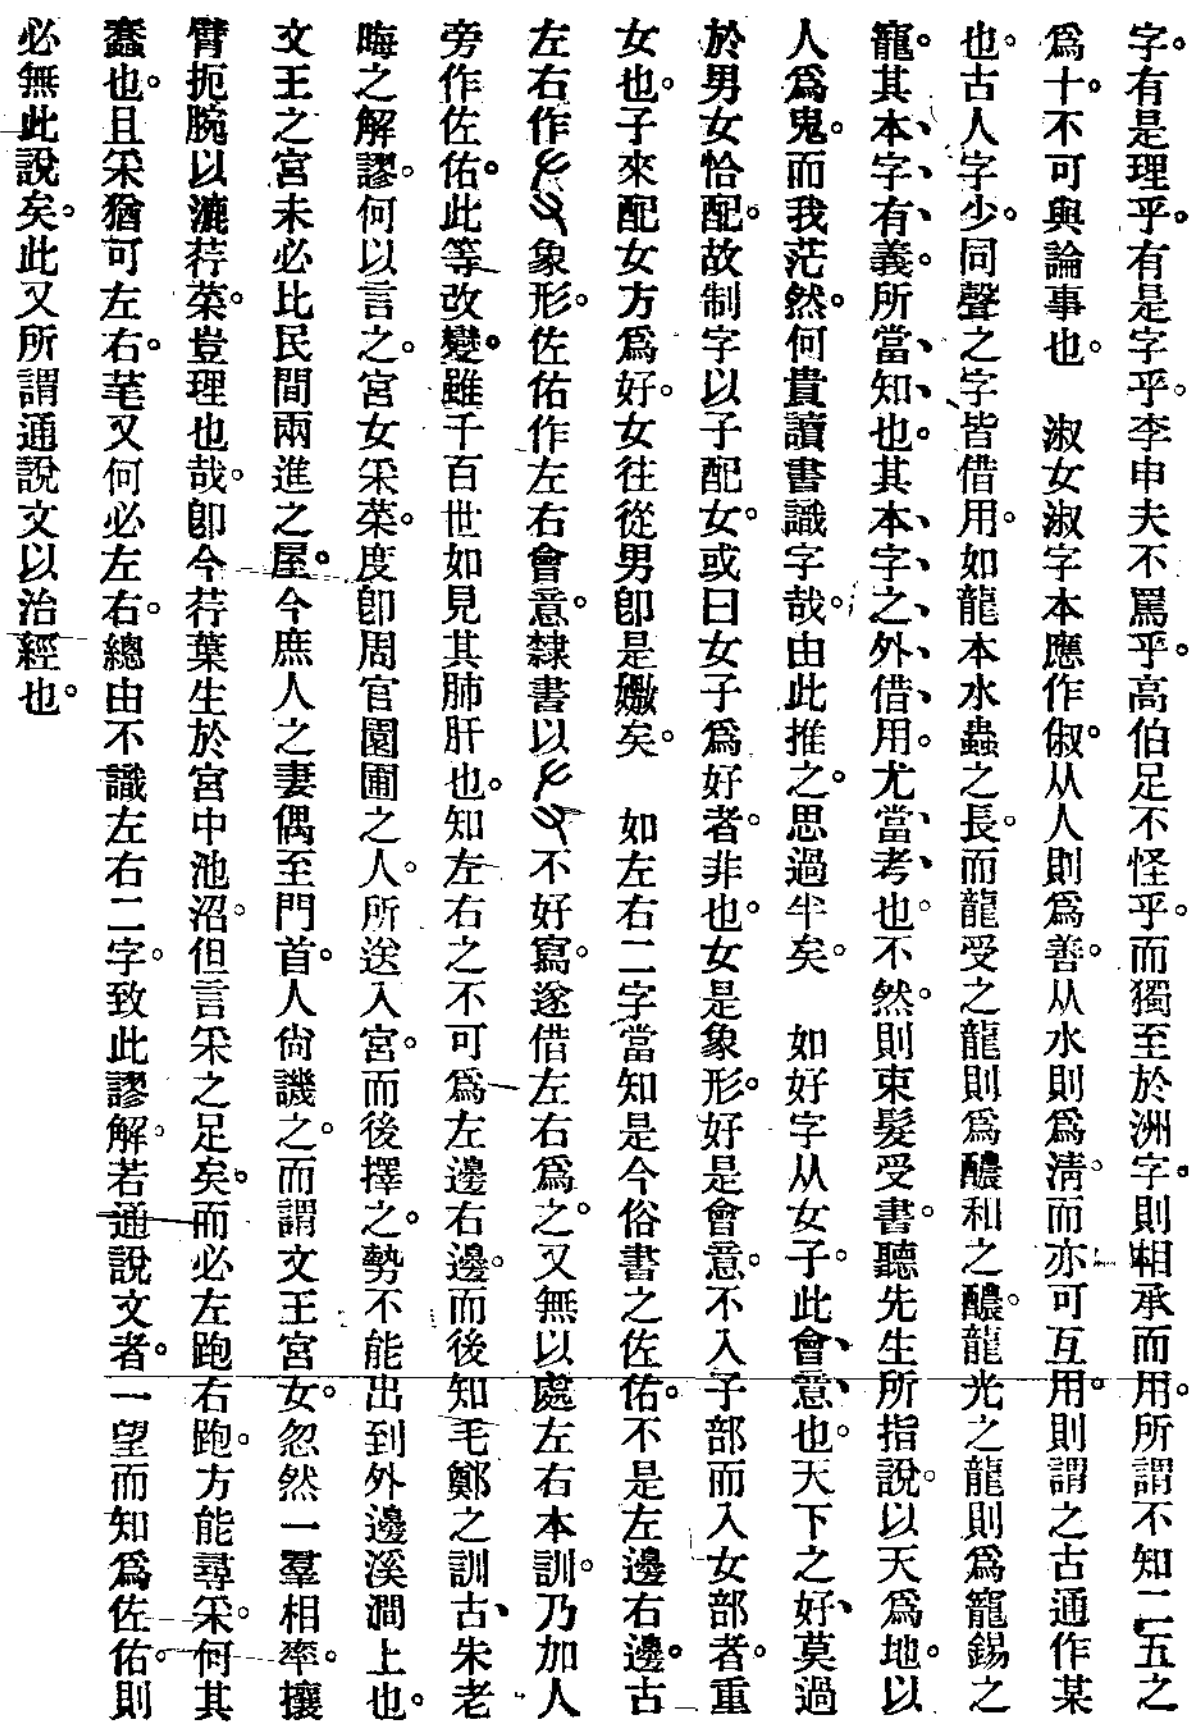 字。有是理乎。有是字乎。李申夫不罵乎。高伯足不怪乎。而獨至於洲字。則相承而用。所謂不知二五之
爲十。不可與論事也。　淑女淑字本應作俶。从人則爲善。从水則爲淸。而亦可互用。則謂之古通作某
也。古人字少。同聲之字皆借用。如龍本水蟲之長。而龍受之龍則爲醲和之醲。龍光之龍則爲寵錫之
寵。其本字有義。所當知也。其本字之外借用。尤當考也。不然。則束髮受書。聽先生所指說。以天爲地。以
人爲鬼。而我茫然。何貴讀書識字哉。由此推之。思過半矣。　如好字从女子。此會意也。天下之好、莫過
於男女恰配。故制字以子配女。或曰女子爲好者。非也。女是象形。好是會意。不入子部而入女部者。重
女也。子來配女方爲好。女往從男卽是嬓矣。　如左右二字當知是今俗書之佐佑。不是左邊右邊。古
左右作𠂇又象形。佐佑作左右會意。隸書以𠂇又不好寫。遂借左右爲之。又無以處左右本訓。乃加人
旁作佐佑。此等改變。雖千百世如見其肺肝也。知左右之不可爲左邊右邊。而後知毛鄭之訓古、朱老
晦之解謬。何以言之。宮女采菜。度卽周官園圃之人。所送入宮。而後擇之。勢不能出到外邊溪澗上也。
文王之宮未必比民間兩進之屋。今庶人之妻偶至門首。人尙譏之。而謂文王宮女。忽然一羣相率。攘
臂扼腕以漉荇菜。豈理也哉。卽今荇葉生於宮中池沼。但言采之足矣。而必左跑右跑。方能尋采。何其
蠢也。且采猶可左右。芼又何必左右。總由不識左右二字。致此謬解。若通說文者。一望而知爲佐佑。則
必無此說矣。此又所謂通說文以治經也。